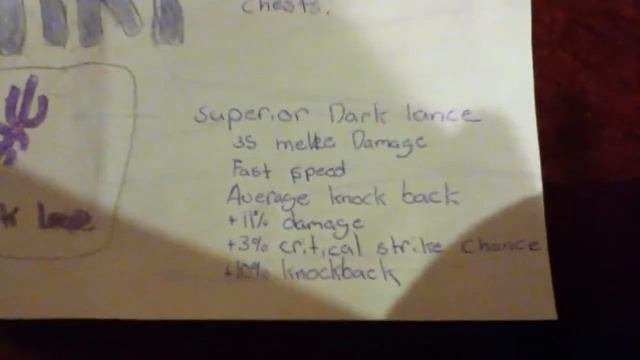 chests.
Superior Dark lance
35 melee Damage
Fast speed
Average knock back
+11% damage
+3% critical strike chance
+10% knockback